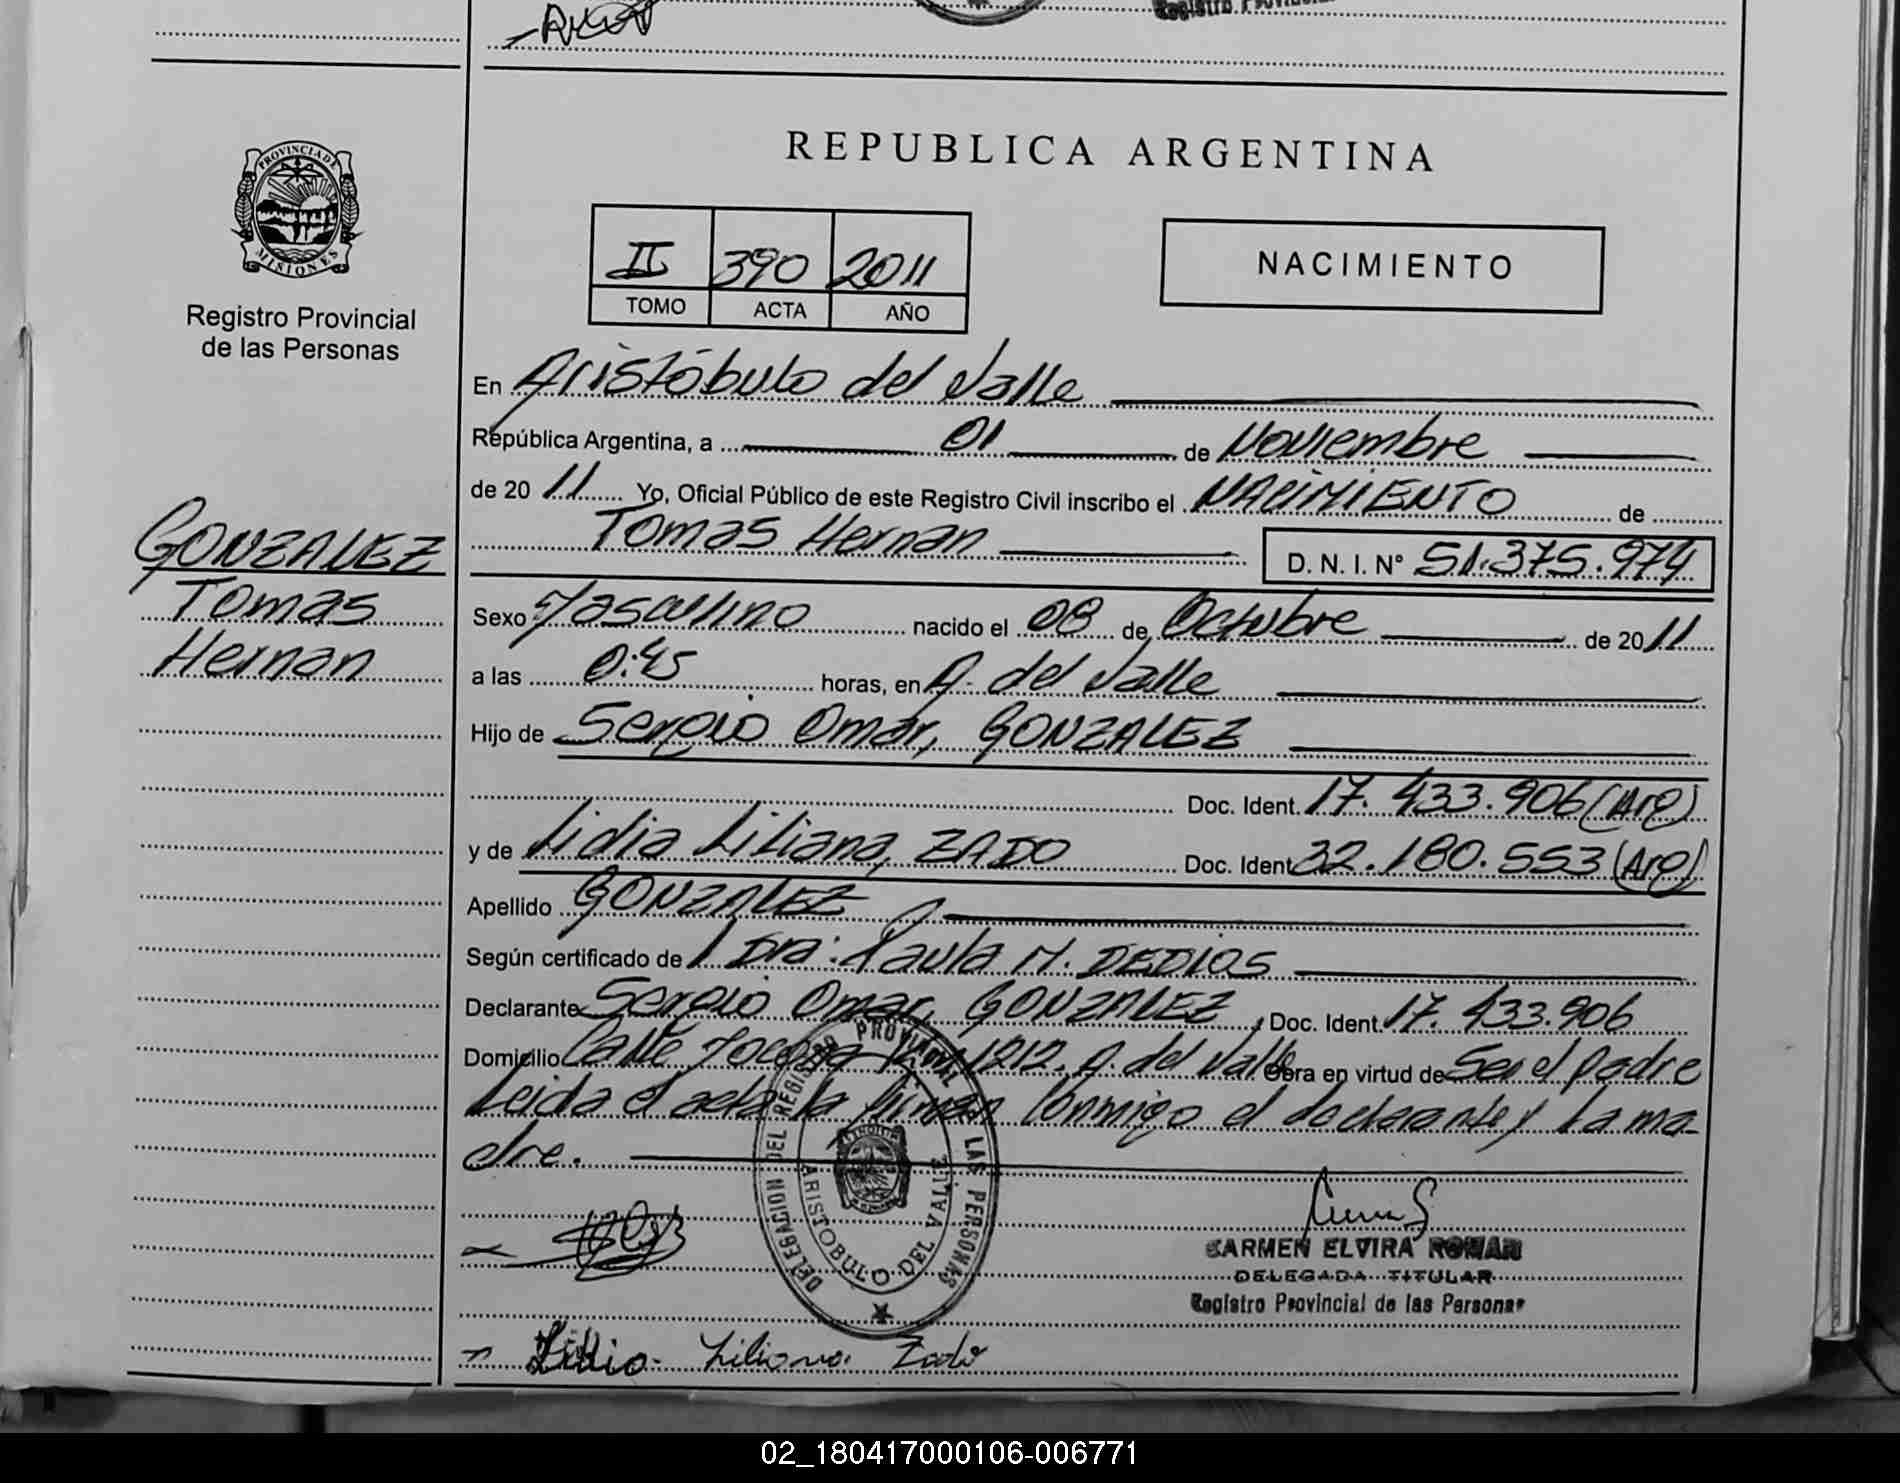 Registro Provincial
PROVINCIA DE
MISIONES
Registro Provincial
de las Personas
GONZALEZ
Tomas
Hernan
REPUBLICA ARGENTINA
II 390 2011
TOMO ACTA AÑO
NACIMIENTO
En Aristóbulo del Valle
República Argentina, a 01 de Noviembre
de 2011 Yo, Oficial Público de este Registro Civil inscribo el NACIMIENTO de
Tomas Hernan D. N. I. Nº 51.375.974
Sexo Masculino nacido el 08 de Octubre de 2011
a las 0:45 horas, en A. del Valle
Hijo de Sergio Omar, GONZALEZ
Doc. Ident. 17.433.906 (Arg)
y de Lidia Liliana, ZADO Doc. Ident 32.180.553 (Arg)
Apellido GONZALEZ
Según certificado de Dra: Paula M. DEDIOS
Declarante Sergio Omar, GONZALEZ, Doc. Ident. 17.433.906
Domicilio Calle 1212. A. del Valle Obra en virtud de Ser el padre
Leida el acta la firman conmigo el declarante y la ma-
dre.
DELEGACION DEL REGISTRO PROVINCIAL DE LAS PERSONAS
ARISTOBULO DEL VALLE
CARMEN ELVIRA ROMAN
DELEGADA TITULAR
Registro Provincial de las Personas
Lidia Liliana Zado
02_180417000106-006771